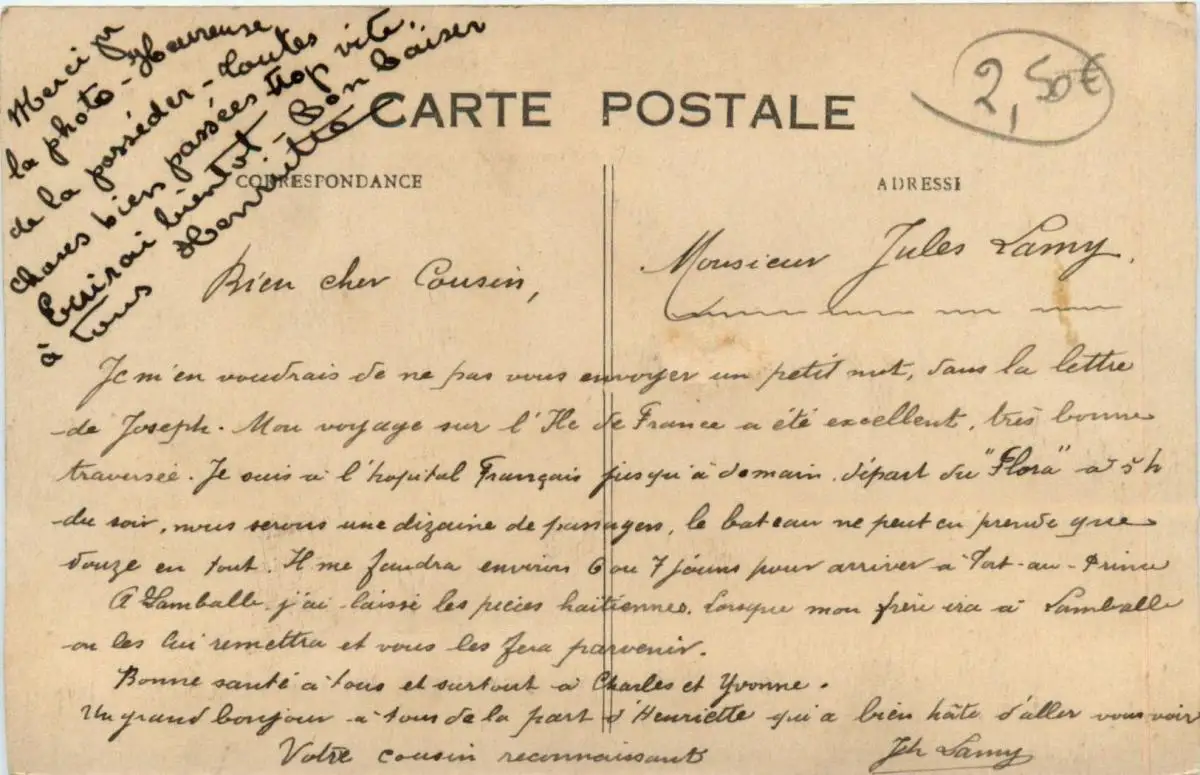 Merci pr
la photo - Heureuse
de la posséder - toutes
choses bien passées trop vite.
à Ecrirai bientot Bon baiser
tous Henriette
CARTE POSTALE
2,50€
CORRESPONDANCE
ADRESSE
Monsieur Jules Lamy.
Bien cher Cousin,
Je m'en voudrais de ne pas vous envoyer un petit mot, dans la lettre
de Joseph. Mon voyage sur l'Ile de France a été excellent, très bonne
traversée. Je suis à l'hopital Français jusqu'à demain, départ du "Flora" à 5 h
du soir, nous serons une dizaine de passagers, le bateau ne peut en prendre que
douze en tout. Il me faudra environ 6 ou 7 jours pour arriver à Port-au-Prince
A Lamballe j'ai laissé les pièces haïtiennes. Lorsque mon frère ira à Lamballe
on les lui remettra et vous les fera parvenir.
Bonne santé à tous et surtout à Charles et Yvonne.
Un grand bonjour à tous de la part d'Henriette qui a bien hâte d'aller vous voir
Votre cousin reconnaissant
Jh Lamy